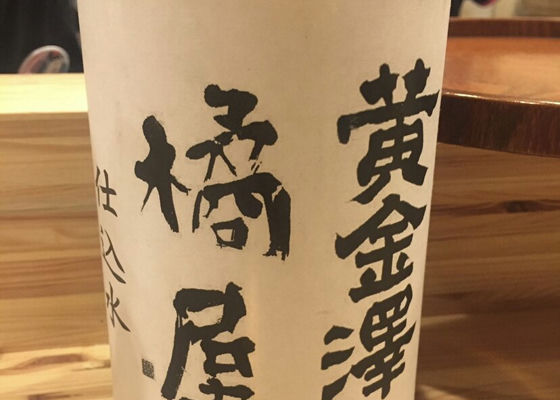 黄金澤
橘屋
仕込水